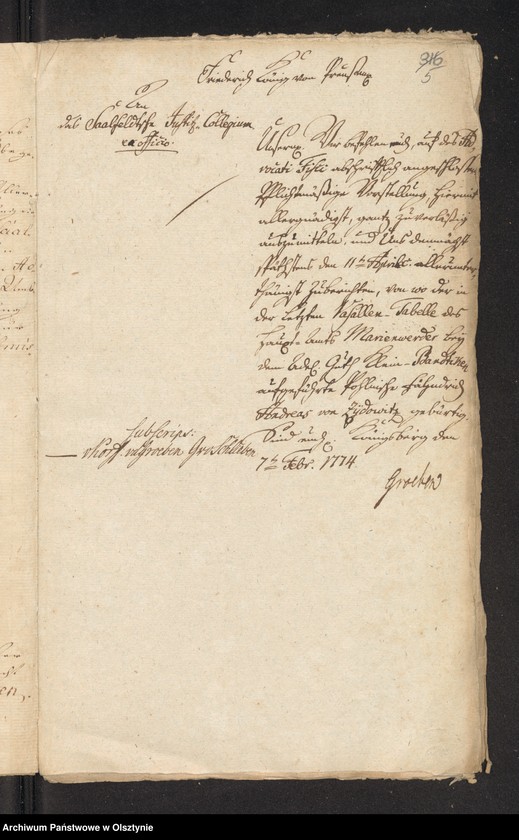 346
5
Friederich König von Preußen
An
das Saalfeldtsche Justitz-Collegium
ex officio
Unsern. Wir befehlen euch, auf des Ad-
vocati Fisci abschriftlich angeschloßene
Pflichtmäßige Vorstellung hiermit
allergnädigst, gantz zuverläßig
auszumitteln, und Uns demnächst
spätstens den 11ten Aprilis allerunter-
thänigst zu berichten, von wo der in
der letzten Vasallen-Tabelle des
Haupt-Amts Marienwerder bey
dem adel. Guth Klein-Bandtken
aufgeführte Pohlnische Fähndrich
Andreas von Zydowitz gebürtig.
Sind euch Königsberg den
7ten Febr. 1774
subscrips:
v. Groeben
Groeben
Archiwum Państwowe w Olsztynie